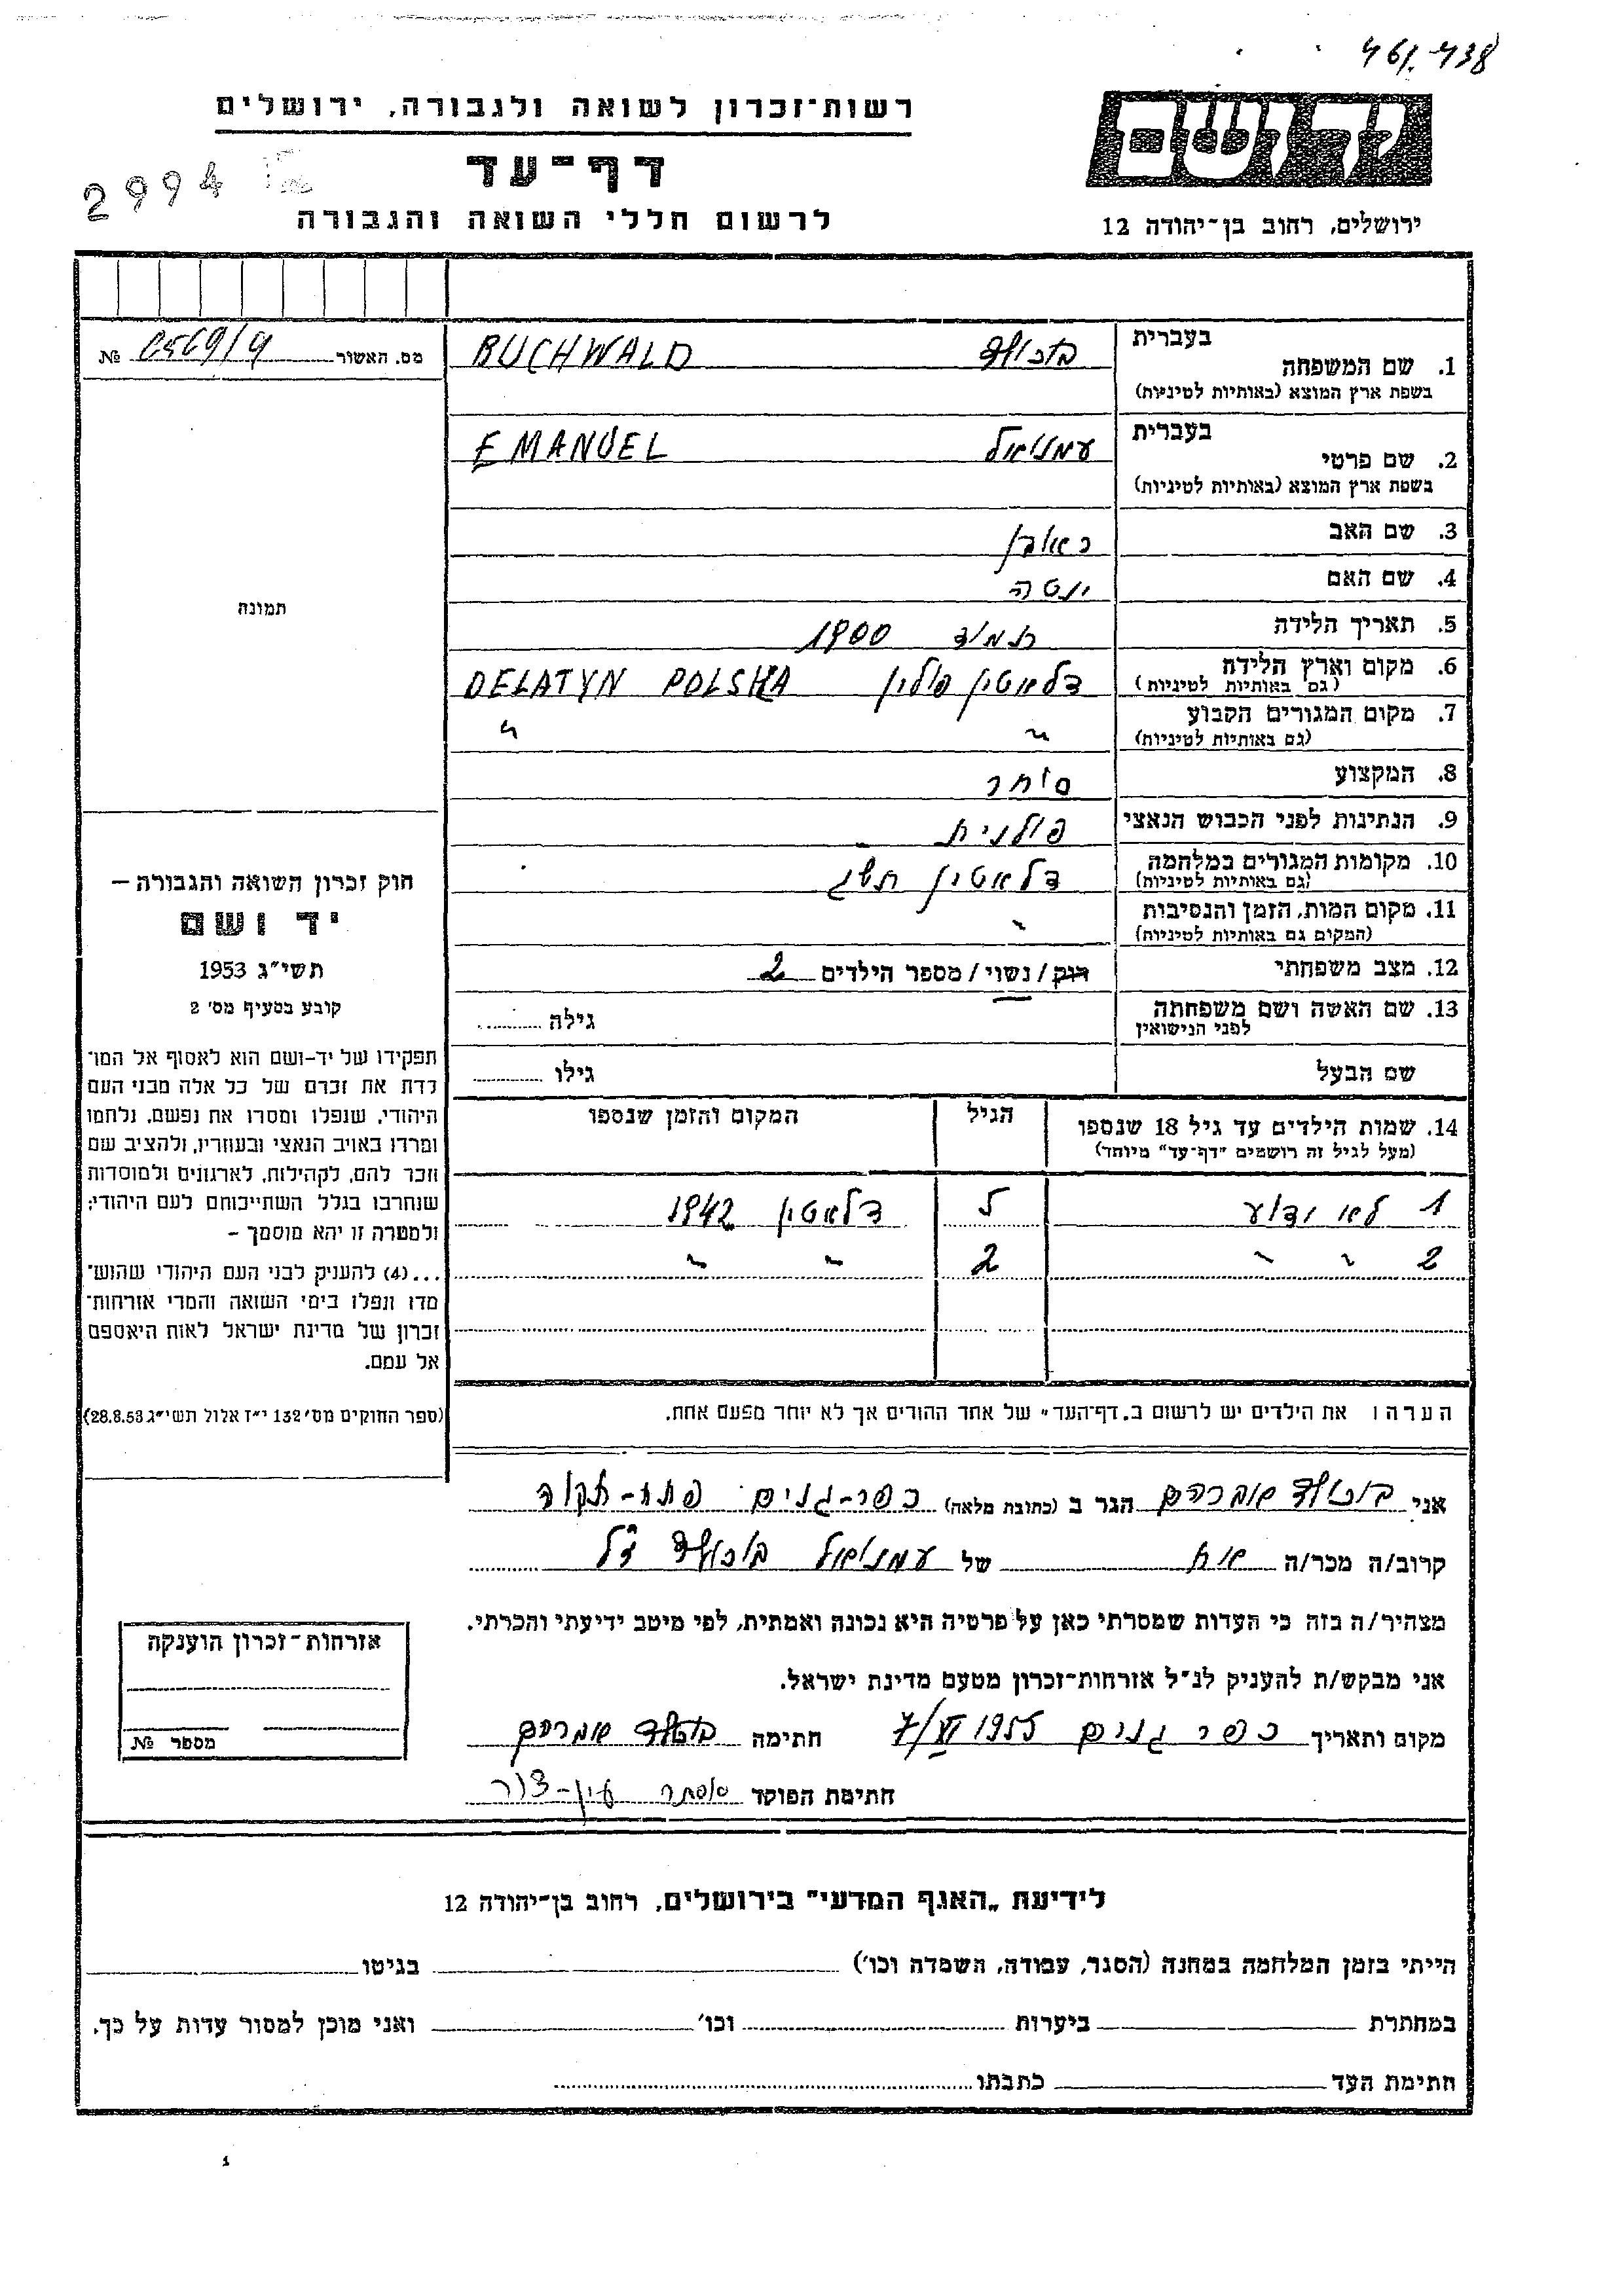 461.438
רשות־זכרון לשואה ולגבורה, ירושלים
דף־עד
2994
לרשום חללי השואה והגבורה
ידושם
ירושלים, רחוב בן־יהודה 12
מס. האשור 0569/9 №
1. שם המשפחה בעברית בוכולד BUCHWALD
בשפת ארץ המוצא (באותיות לטיניות)
2. שם פרטי בעברית עמנואל EMANUEL
בשפת ארץ המוצא (באותיות לטיניות)
3. שם האב ראובן
4. שם האם יטה
5. תאריך הלידה 1900
6. מקום וארץ הלידה דלאטין פולין DELATYN POLSKA
(גם באותיות לטיניות)
7. מקום המגורים הקבוע " "
(גם באותיות לטיניות)
8. המקצוע סוחר
9. הנתינות לפני הכבוש הנאצי פולנית
10. מקומות המגורים במלחמה דלאטין
(גם באותיות לטיניות)
11. מקום המות, הזמן והנסיבות "
(המקום גם באותיות לטיניות)
12. מצב משפחתי רוק/נשוי/מספר הילדים 2
13. שם האשה ושם משפחתה לפני הנישואין גילה
שם הבעל גילו
14. שמות הילדים עד גיל 18 שנספו הגיל המקום והזמן שנספו
(מעל לגיל זה רושמים "דף־עד" מיוחד)
1 לא ידוע 5 דלאטין 1942
2 " " 2 " "
תמונה
חוק זכרון השואה והגבורה –
יד ושם
תשי"ג 1953
קובע בסעיף מס' 2
תפקידו של יד-ושם הוא לאסוף אל המו־
לדת את זכרם של כל אלה מבני העם
היהודי, שנפלו ומסרו את נפשם, נלחמו
ומרדו באויב הנאצי ובעוזריו, ולהציב שם
וזכר להם, לקהילות, לארגונים ולמוסדות
שנחרבו בגלל השתייכותם לעם היהודי;
ולמטרה זו יהא מוסמך –
...(4) להעניק לבני העם היהודי שהוש־
מדו ונפלו בימי השואה והמרי אזרחות־
זכרון של מדינת ישראל לאות היאספם
אל עמם.
(ספר החוקים מס' 132 י"ז אלול תשי"ג 28.8.53)
הערה: את הילדים יש לרשום ב„דף־העד" של אחד ההורים אך לא יותר מפעם אחת.
אני בוכולד אברהם הגר ב (כתובת מלאה) כפר-גנים פתח-תקוה
קרוב/ה מכר/ה אח של עמנואל בוכולד ז"ל
מצהיר/ה בזה כי העדות שמסרתי כאן על פרטיה היא נכונה ואמתית, לפי מיטב ידיעתי והכרתי.
אני מבקש/ת להעניק לנ"ל אזרחות־זכרון מטעם מדינת ישראל.
מקום ותאריך כפר גנים 7/VI 1955 חתימה בוכולד אברהם
חתימת הפוקד אסתר עין-צור
אזרחות־זכרון הוענקה
מספר №
לידיעת „האגף המדעי" בירושלים, רחוב בן־יהודה 12
הייתי בזמן המלחמה במחנה (הסגר, עבודה, השמדה וכו') בגיטו
במחתרת ביערות וכו' ואני מוכן למסור עדות על כך.
חתימת העד כתבתו